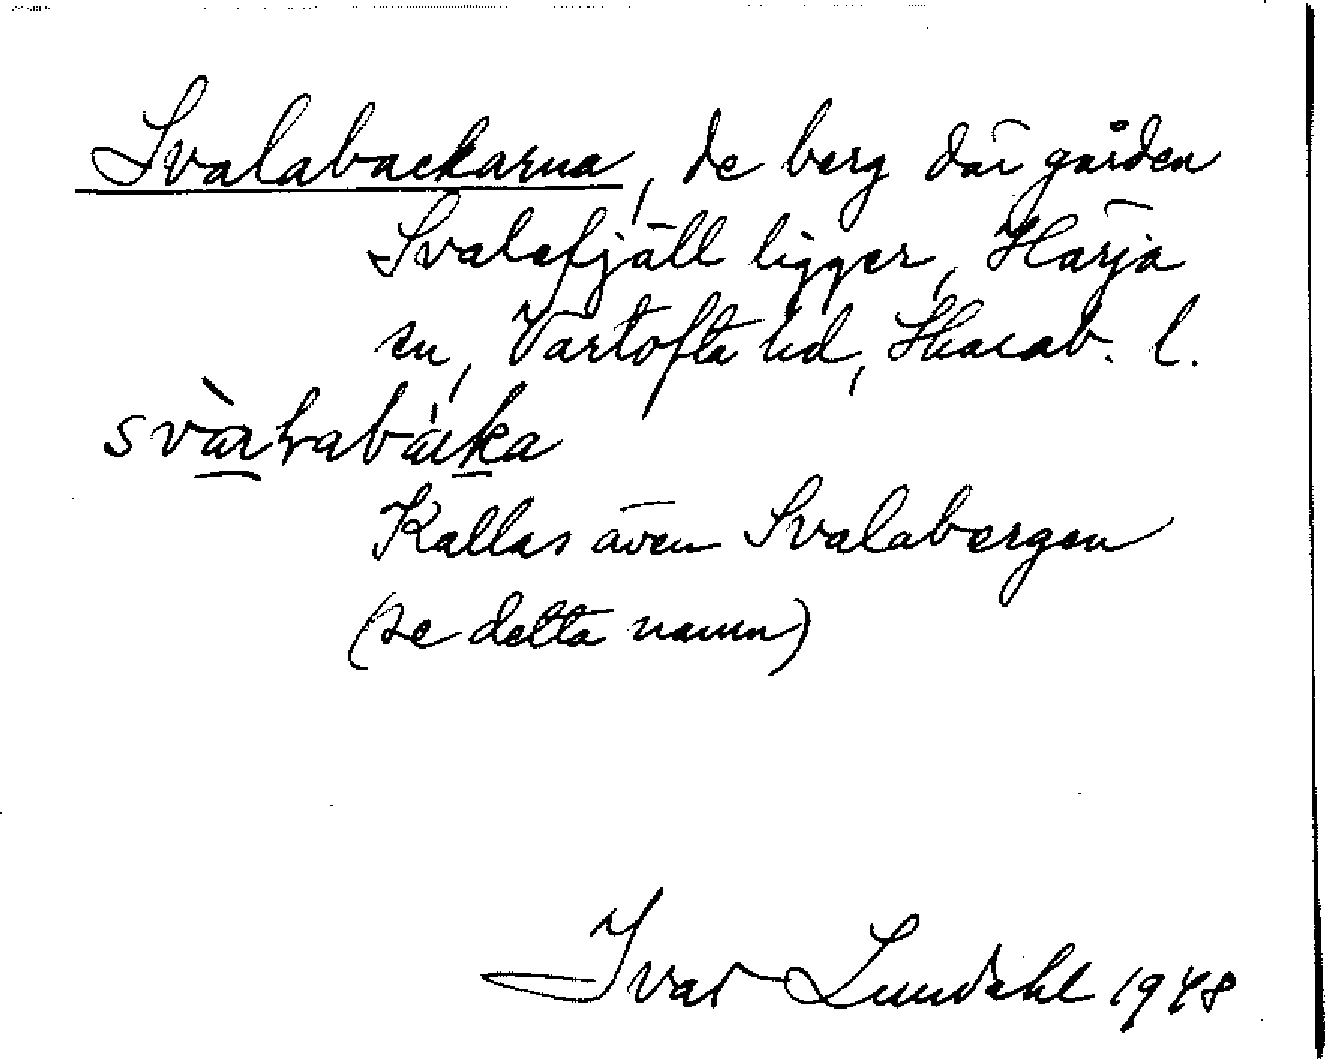 Svalabackarna, de berg där gården
Svalefjäll ligger, Härja
sn, Vartofta hd, Skarab. l.
Kallas även Svalabergen
(se detta namn)
Ivar Lundahl 1948